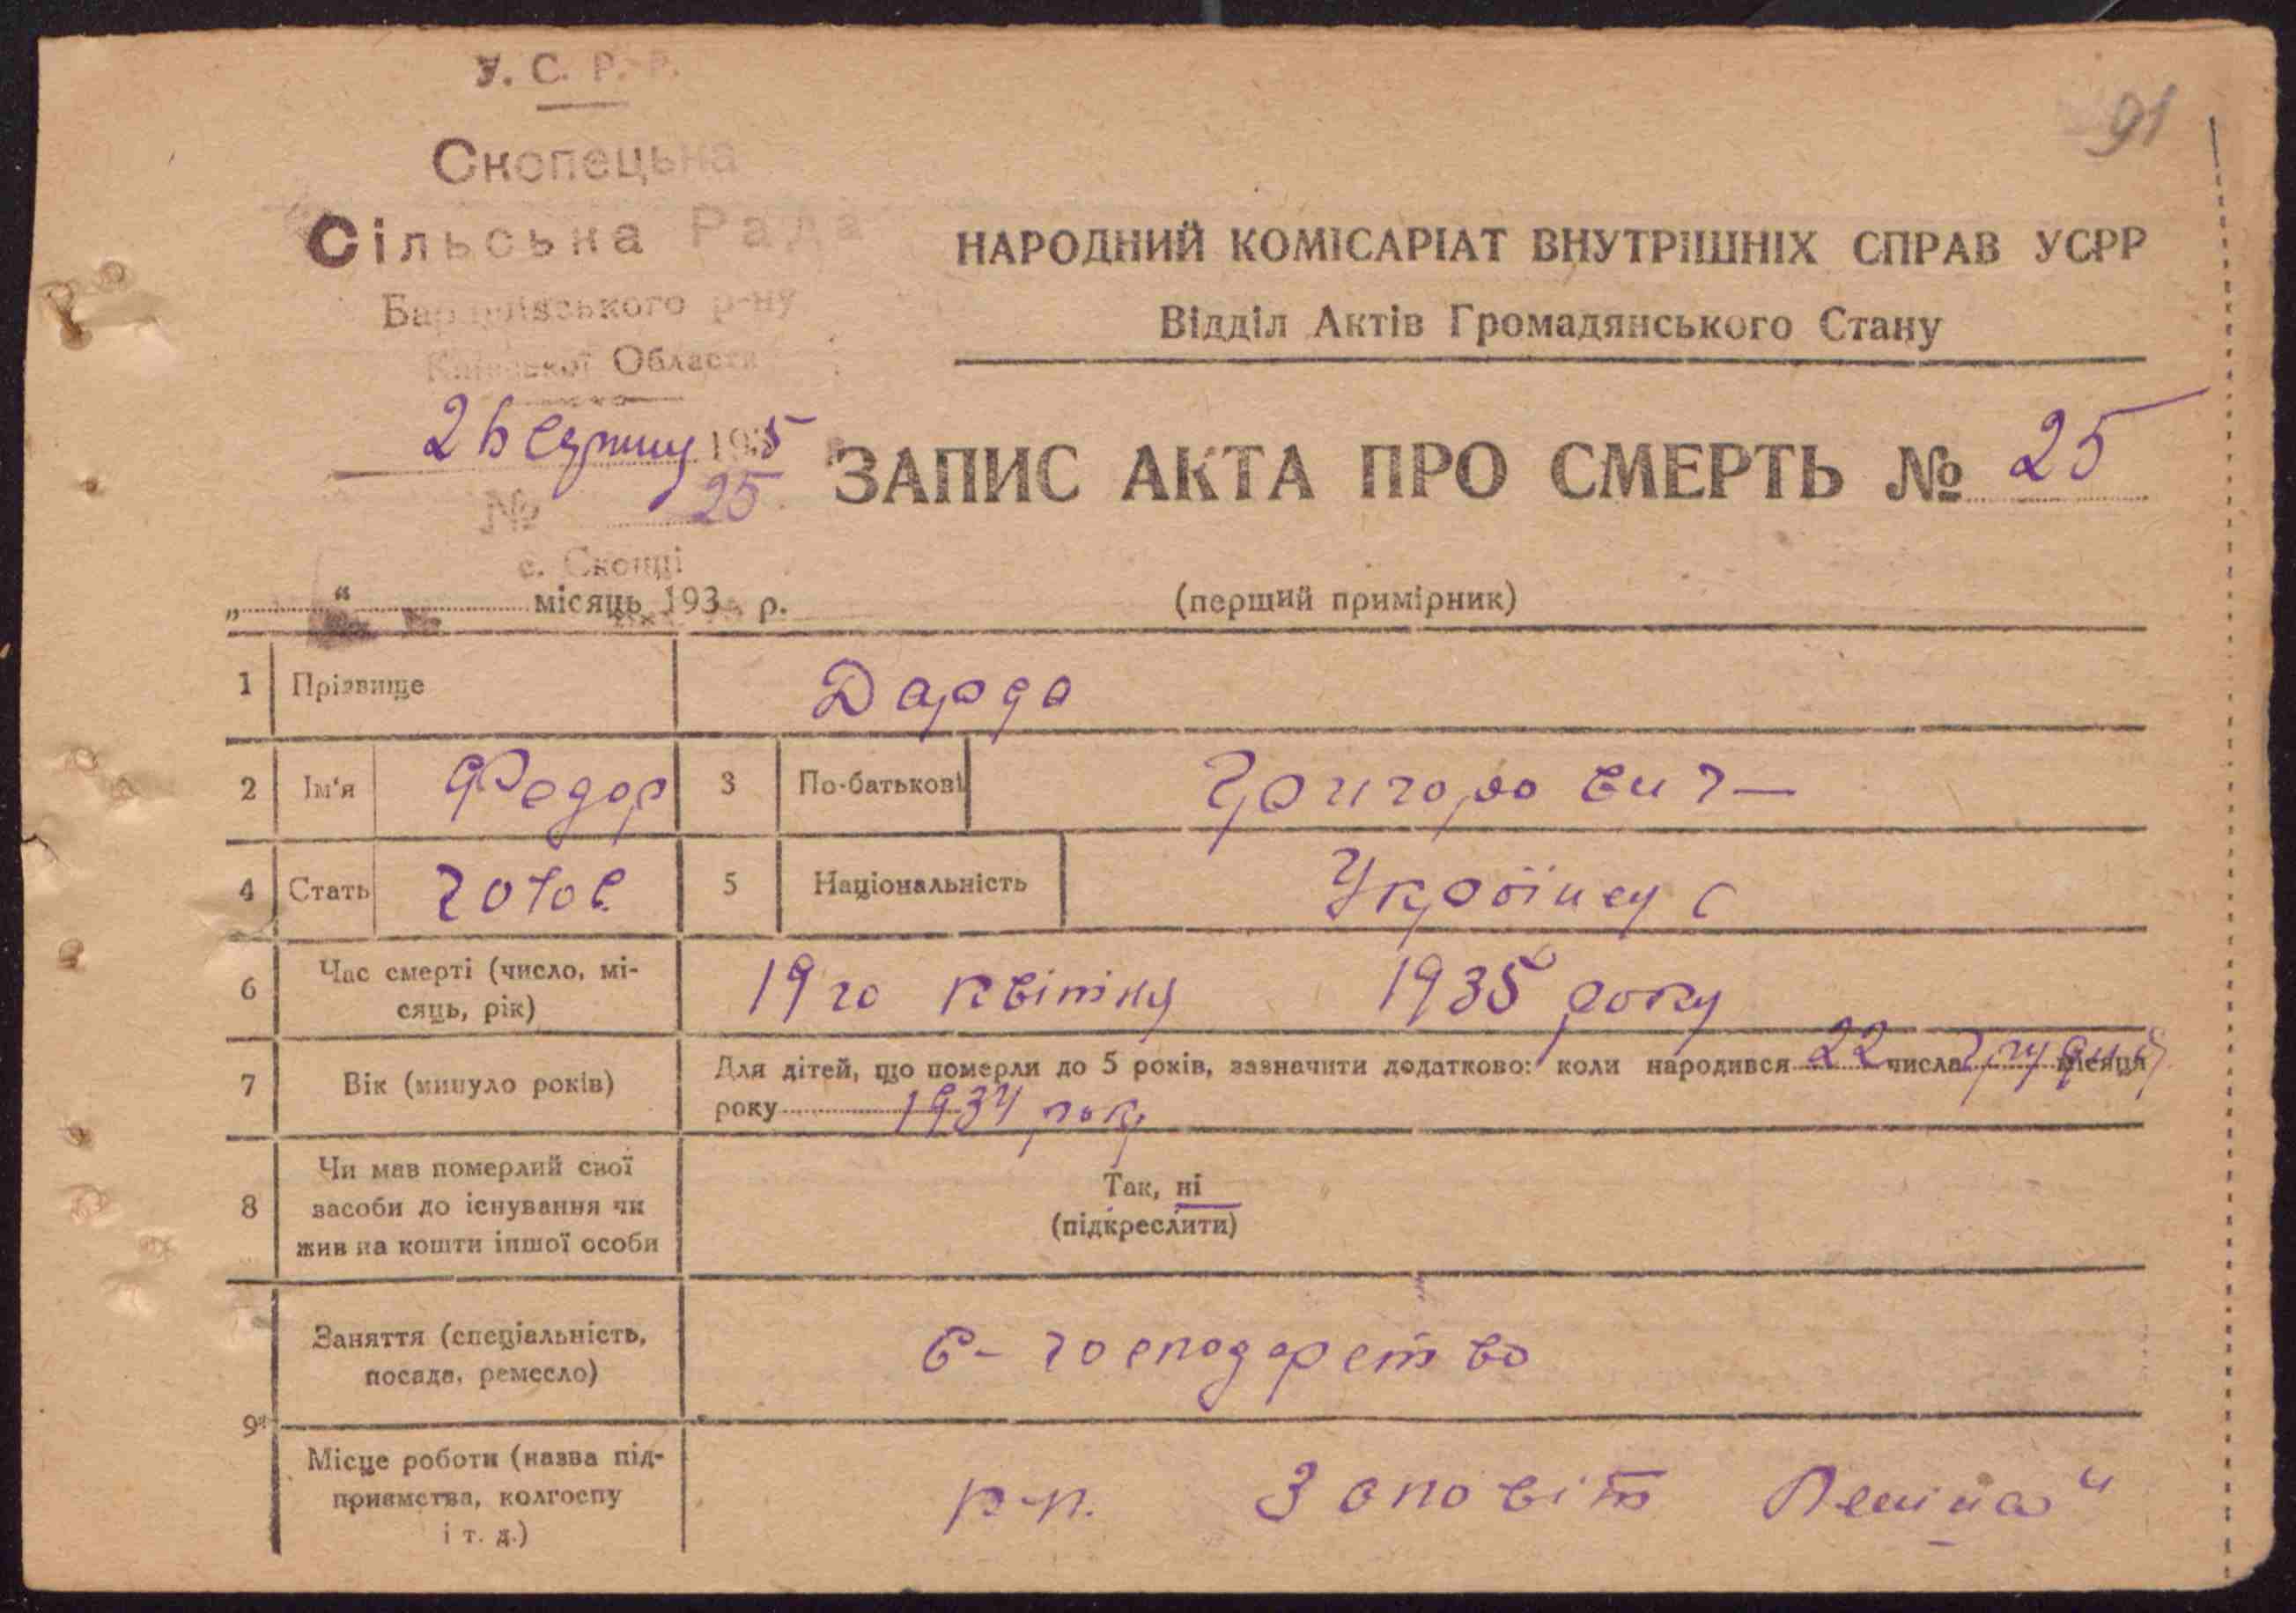 У. С. Р. Р.
91
Скопецька
Сільська Рада
Баришівського р-ну
Київської Области
НАРОДНИЙ КОМІСАРІАТ ВНУТРІШНІХ СПРАВ УСРР
Відділ Актів Громадянського Стану
1935
№ 25
с. Скопці
ЗАПИС АКТА ПРО СМЕРТЬ № 25
„ “ місяць 193 р.
(перший примірник)
1 Прізвище Дарда
2 Ім'я Федор 3 По-батькові Григорович
4 Стать чолов 5 Національність Українец
6 Час смерті (число, мі-
сяць, рік) 19го квітня 1935 року
7 Вік (минуло років) Для дітей, що померли до 5 років, зазначити додатково: коли народився 22 числа грудня місяця
року 1934 року
8 Чи мав померлий свої
засоби до існування чи
жив на кошти іншої особи
Так, ні
(підкреслити)
9 Заняття (спеціальність,
посада, ремесло) с-господарство
Місце роботи (назва під-
приємства, колгоспу
і т. д.) Заповіт Леніна“